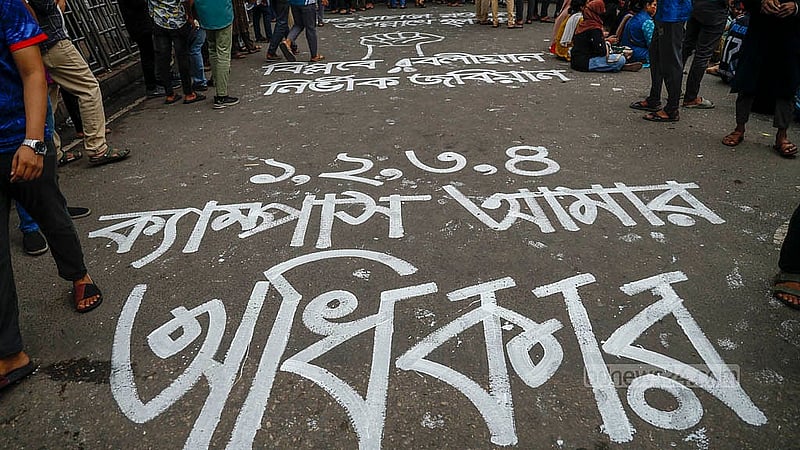 বিপ্লবে বলীয়ান
নির্ভীক জবিয়ান
১,২,৩,৪
ক্যাম্পাস আমার
অধিকার
bdnews24.com